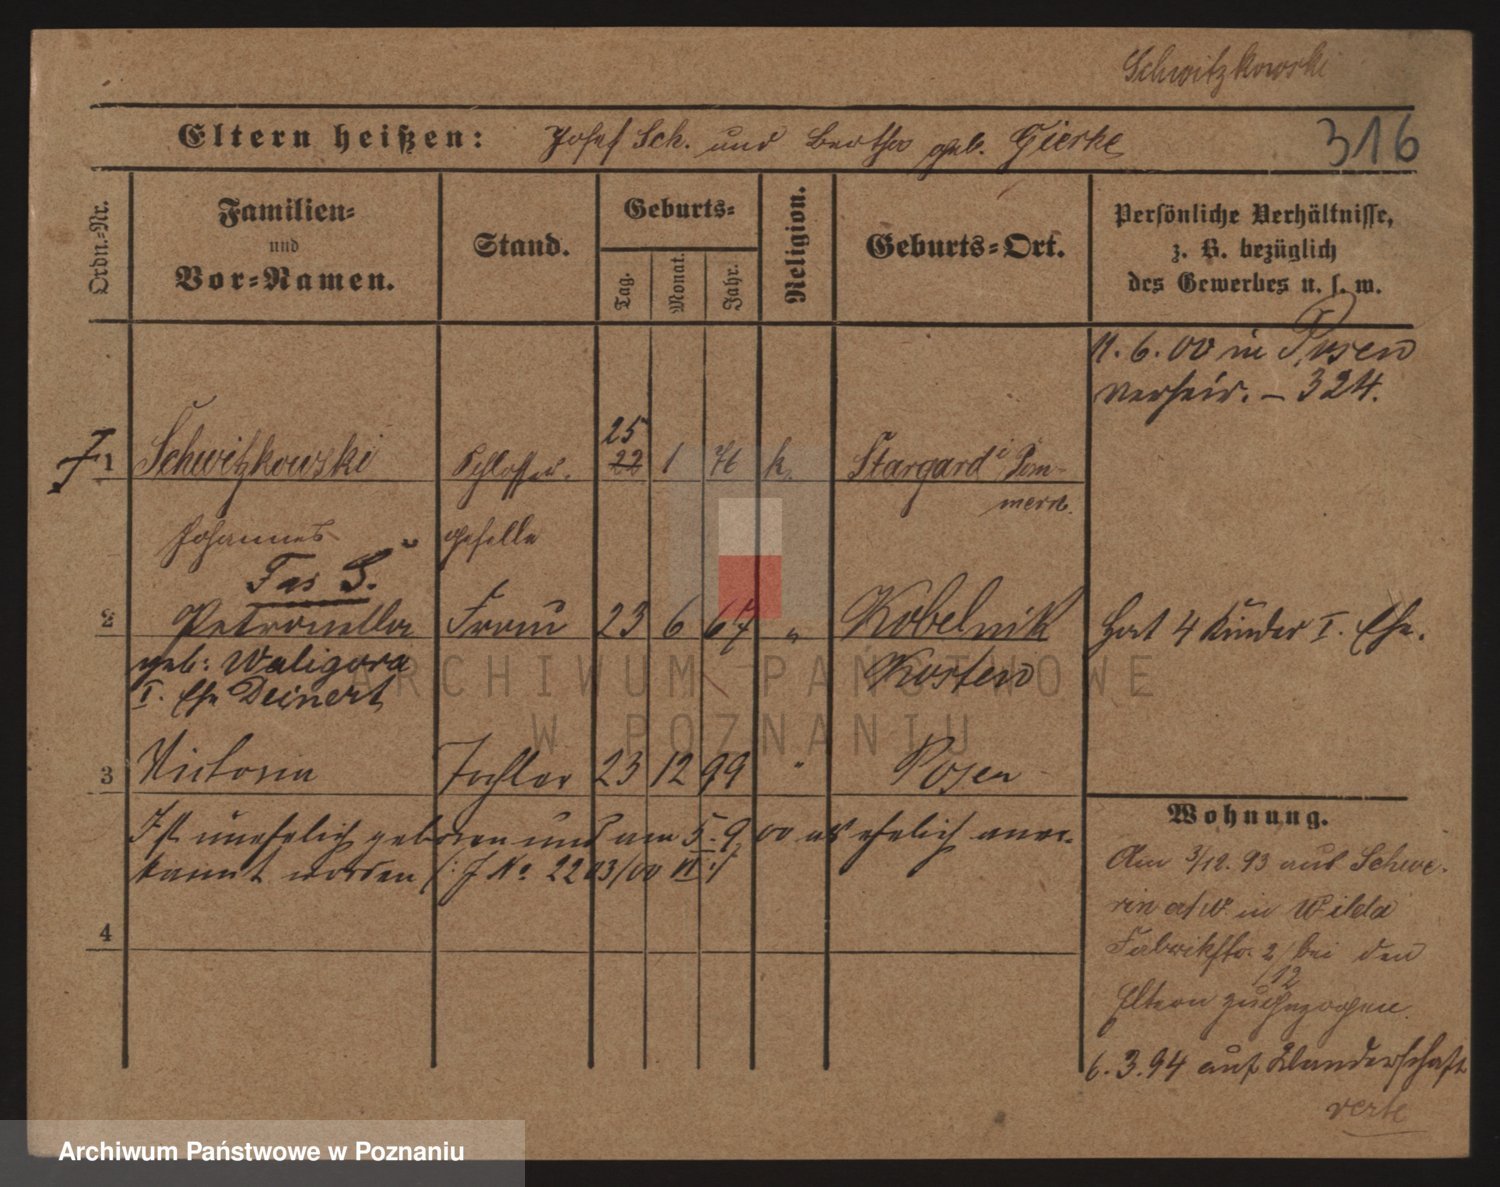 Schwitzkowski
Eltern heißen: Josef Sch. und Bertha geb. Gierke
316
Ordn.-Nr.
Familien-
und
Vor-Namen.
Stand.
Geburts-
Tag.
Monat.
Jahr.
Religion.
Geburts-Ort.
Persönliche Verhältnisse,
z. B. bezüglich
des Gewerbes u. s. w.
11. 6. 00 in Posen
verheir. – 324.
25
1 Schwitzkowski Schlosser- 22 1 76 k. Stargard i/ Pom-
mern.
Johannes geselle
2 Petronella Frau 23 6 67 " Kobelnik Hat 4 Kinder I. Ehe.
geb: Waligora Kosten
I. Ehe Deinert
ARCHIWUM PAŃSTWOWE
W POZNANIU
3 Victoria Tochter 23 12 99 " Posen
Ist unehelich geboren und am 5. 9. 00 als ehelich aner-
kannt worden /: J No. 2203/00 VI :/
4
Wohnung.
Am 3/12. 93 aus Schwe-
rin a/W in Wilda
Fabrikstr. 2 bei den
12
Eltern zugezogen.
6. 3. 94 auf Wanderschaft
verte
Archiwum Państwowe w Poznaniu